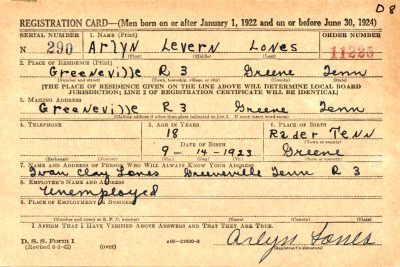 D8
REGISTRATION CARD—(Men born on or after January 1, 1922 and on or before June 30, 1924)
SERIAL NUMBER 1. NAME (Print) ORDER NUMBER
N 290 Arlyn Levern Lones 11225
2. PLACE OF RESIDENCE (Print)
Greeneville R 3 Greene Tenn
(Number and street) (Town, township, village, or city) (County) (State)
[THE PLACE OF RESIDENCE GIVEN ON THE LINE ABOVE WILL DETERMINE LOCAL BOARD
JURISDICTION; LINE 2 OF REGISTRATION CERTIFICATE WILL BE IDENTICAL]
3. MAILING ADDRESS
Greeneville R 3 Greene Tenn
(Mailing address if other than place indicated on line 2. If same insert word same)
4. TELEPHONE 5. AGE IN YEARS 6. PLACE OF BIRTH
18 Rader Tenn
DATE OF BIRTH (Town or county)
9-14-1923 Greene
(Exchange) (Number) (Mo.) (Day) (Yr.) (State or country)
7. NAME AND ADDRESS OF PERSON WHO WILL ALWAYS KNOW YOUR ADDRESS
Ivan Clay Lones Greeneville Tenn R 3
8. EMPLOYER'S NAME AND ADDRESS
Unemployed
9. PLACE OF EMPLOYMENT OR BUSINESS
(Number and street or R. F. D. number) (Town) (County) (State)
I AFFIRM THAT I HAVE VERIFIED ABOVE ANSWERS AND THAT THEY ARE TRUE.
D. S. S. Form 1
(Revised 6-9-42) (over) 16—21630-2 Arlyn Lones
(Registrant's signature)